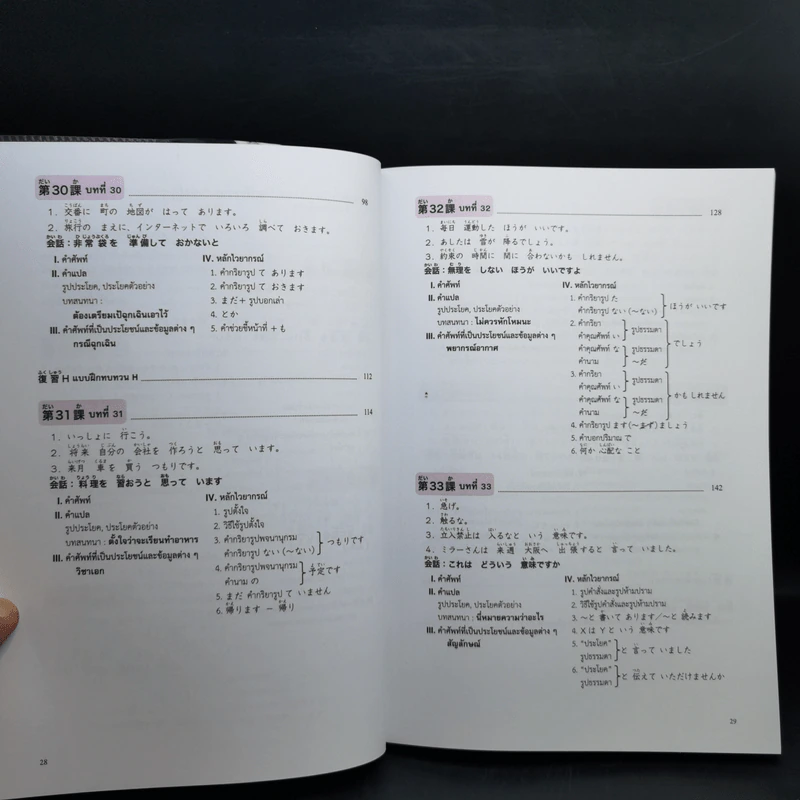 第30課 บทที่ 30
98
1. 交番に 町の 地図が はって あります。
2. 旅行の まえに、インターネットで いろいろ 調べて おきます。
会話：非常袋を 準備して おかないと
I. คำศัพท์
II. คำแปล
รูปประโยค, ประโยคตัวอย่าง
บทสนทนา :
ต้องเตรียมเป้ฉุกเฉินเอาไว้
III. คำศัพท์ที่เป็นประโยชน์และข้อมูลต่าง ๆ
กรณีฉุกเฉิน
IV. หลักไวยากรณ์
1. คำกริยารูป て あります
2. คำกริยารูป て おきます
3. まだ + รูปบอกเล่า
4. とか
5. คำช่วยชี้หน้าที่ + も
復習 H แบบฝึกทบทวน H
112
第31課 บทที่ 31
114
1. いっしょに 行こう。
2. 将来 自分の 会社を 作ろうと 思って います。
3. 来月 車を 買う つもりです。
会話：料理を 習おうと 思って います
I. คำศัพท์
II. คำแปล
รูปประโยค, ประโยคตัวอย่าง
บทสนทนา : ตั้งใจว่าจะเรียนทำอาหาร
III. คำศัพท์ที่เป็นประโยชน์และข้อมูลต่าง ๆ
วิชาเอก
IV. หลักไวยากรณ์
1. รูปตั้งใจ
2. วิธีใช้รูปตั้งใจ
3. คำกริยารูปพจนานุกรม
คำกริยารูป ない (〜ない) つもりです
4. คำกริยารูปพจนานุกรม
คำนาม の 予定です
5. まだ คำกริยารูป て いません
6. 帰ります − 帰り
28
第32課 บทที่ 32
128
1. 毎日 運動した ほうが いいです。
2. あしたは 雪が 降るでしょう。
3. 約束の 時間に 間に 合わないかも しれません。
会話：無理を しない ほうが いいですよ
I. คำศัพท์
II. คำแปล
รูปประโยค, ประโยคตัวอย่าง
บทสนทนา : ไม่ควรหักโหมนะ
III. คำศัพท์ที่เป็นประโยชน์และข้อมูลต่าง ๆ
พยากรณ์อากาศ
IV. หลักไวยากรณ์
1. คำกริยารูป た
คำกริยารูป ない (〜ない) ほうが いいです
2. คำกริยา
คำคุณศัพท์ い รูปธรรมดา
คำคุณศัพท์ な でしょう
คำนาม 〜だ
3. คำกริยา
คำคุณศัพท์ い รูปธรรมดา
คำคุณศัพท์ な かも しれません
คำนาม 〜だ
4. คำกริยารูป ます(〜ます) ましょう
5. คำบอกปริมาณ で
6. 何か 心配な こと
第33課 บทที่ 33
142
1. 急げ。
2. 触るな。
3. 立入禁止は 入るなと いう 意味です。
4. ミラーさんは 来週 大阪へ 出張すると 言って いました。
会話：これは どういう 意味ですか
I. คำศัพท์
II. คำแปล
รูปประโยค, ประโยคตัวอย่าง
บทสนทนา : นี่หมายความว่าอะไร
III. คำศัพท์ที่เป็นประโยชน์และข้อมูลต่าง ๆ
สัญลักษณ์
IV. หลักไวยากรณ์
1. รูปคำสั่งและรูปห้ามปราม
2. วิธีใช้รูปคำสั่งและรูปห้ามปราม
3. 〜と 書いて あります/〜と 読みます
4. X は Y と いう 意味です
5. "ประโยค"
รูปธรรมดา と 言って いました
6. "ประโยค"
รูปธรรมดา と 伝えて いただけませんか
29